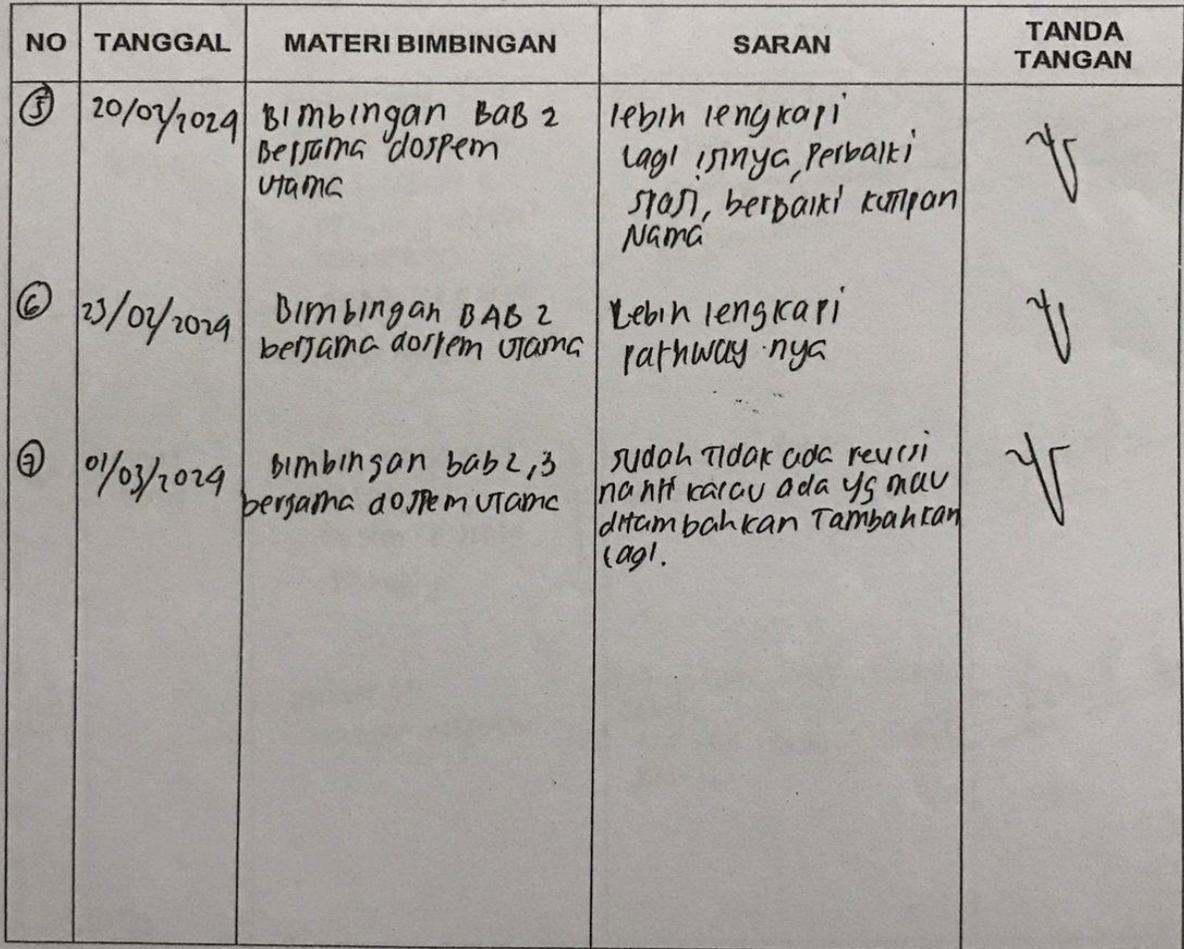 NO TANGGAL MATERI BIMBINGAN SARAN TANDA TANGAN
5 20/02/2024 Bimbingan BaB 2
Bersama dospem
utama
lebih lengkapi
lagi isinya, Perbaiki
sitasi, berbaiki kutipan
Nama
6 23/02/2024 Bimbingan BAB 2
bersama dospem utama
Lebih lengkapi
pathway nya
7 01/03/2024 bimbingan bab 2,3
bersama dospem utama
sudah Tidak ada revisi
nanti kalau ada yg mau
ditambahkan Tambahkan
lagi.